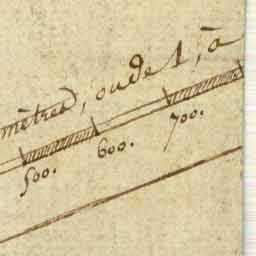 mètres, ou de 1, à
500. 600. 700.